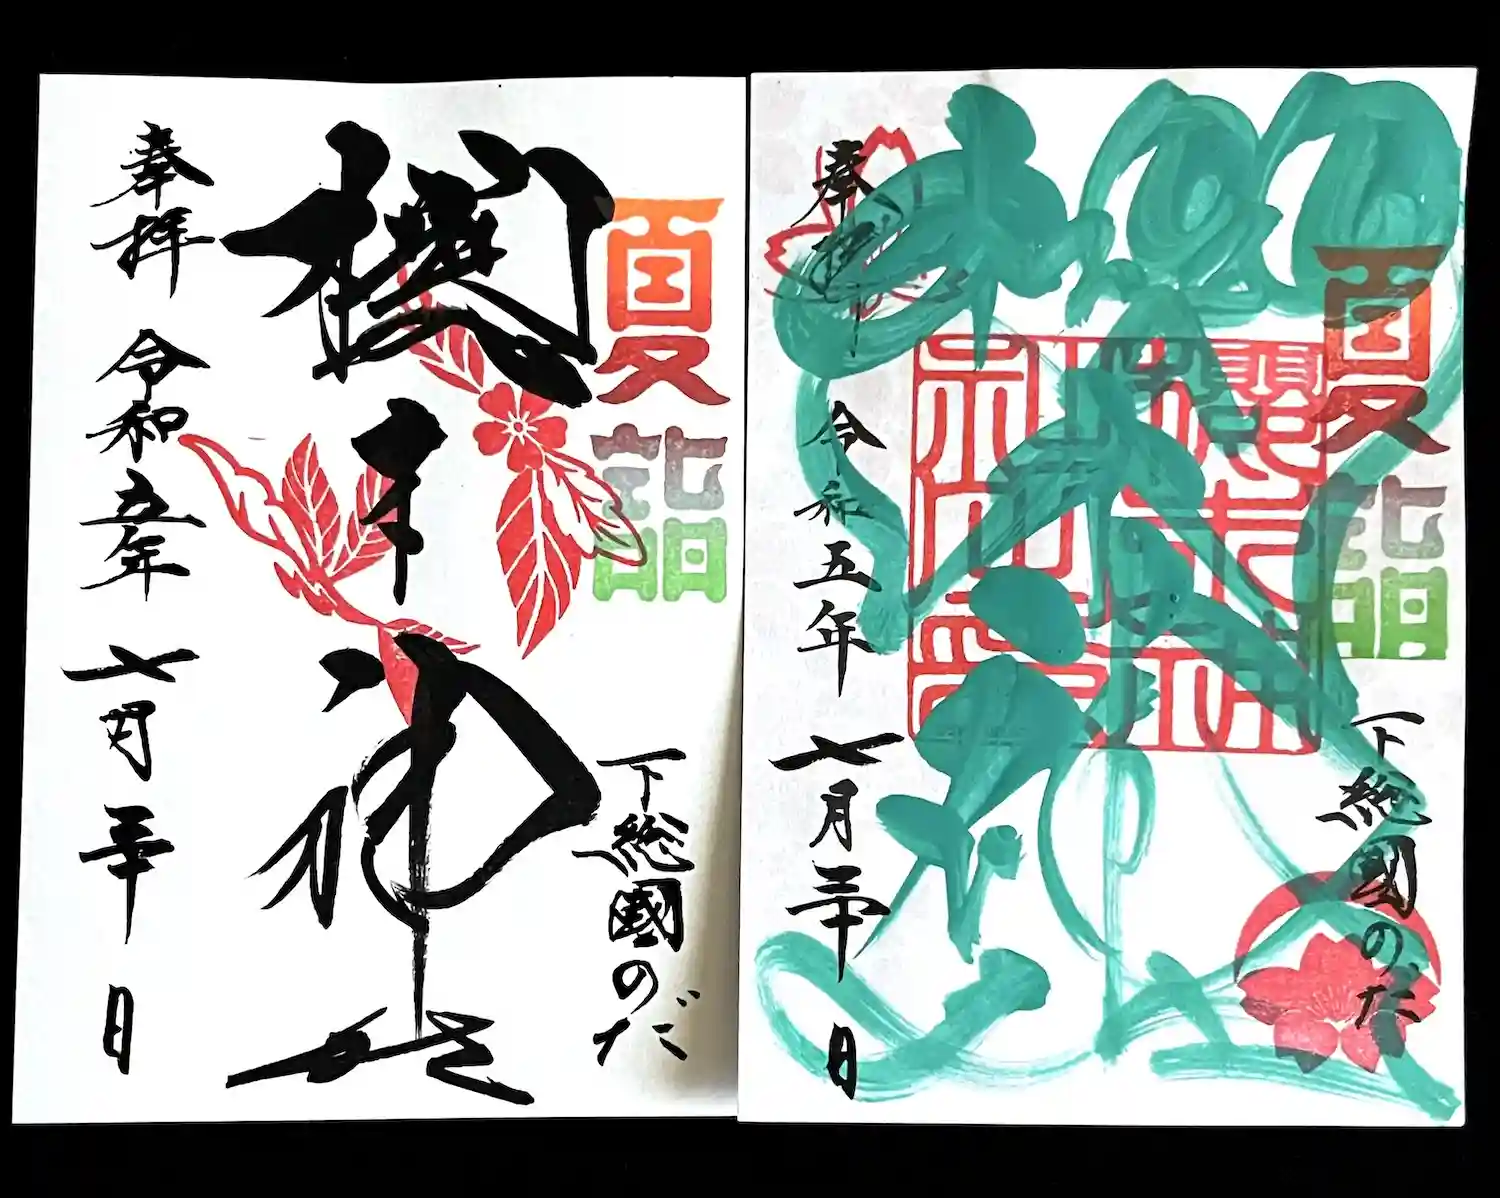 夏詣
下総國のだ
奉拝 令和五年 七月三十日
夏詣
下総國のだ
櫻木神社
奉拝 令和五年 七月三十日